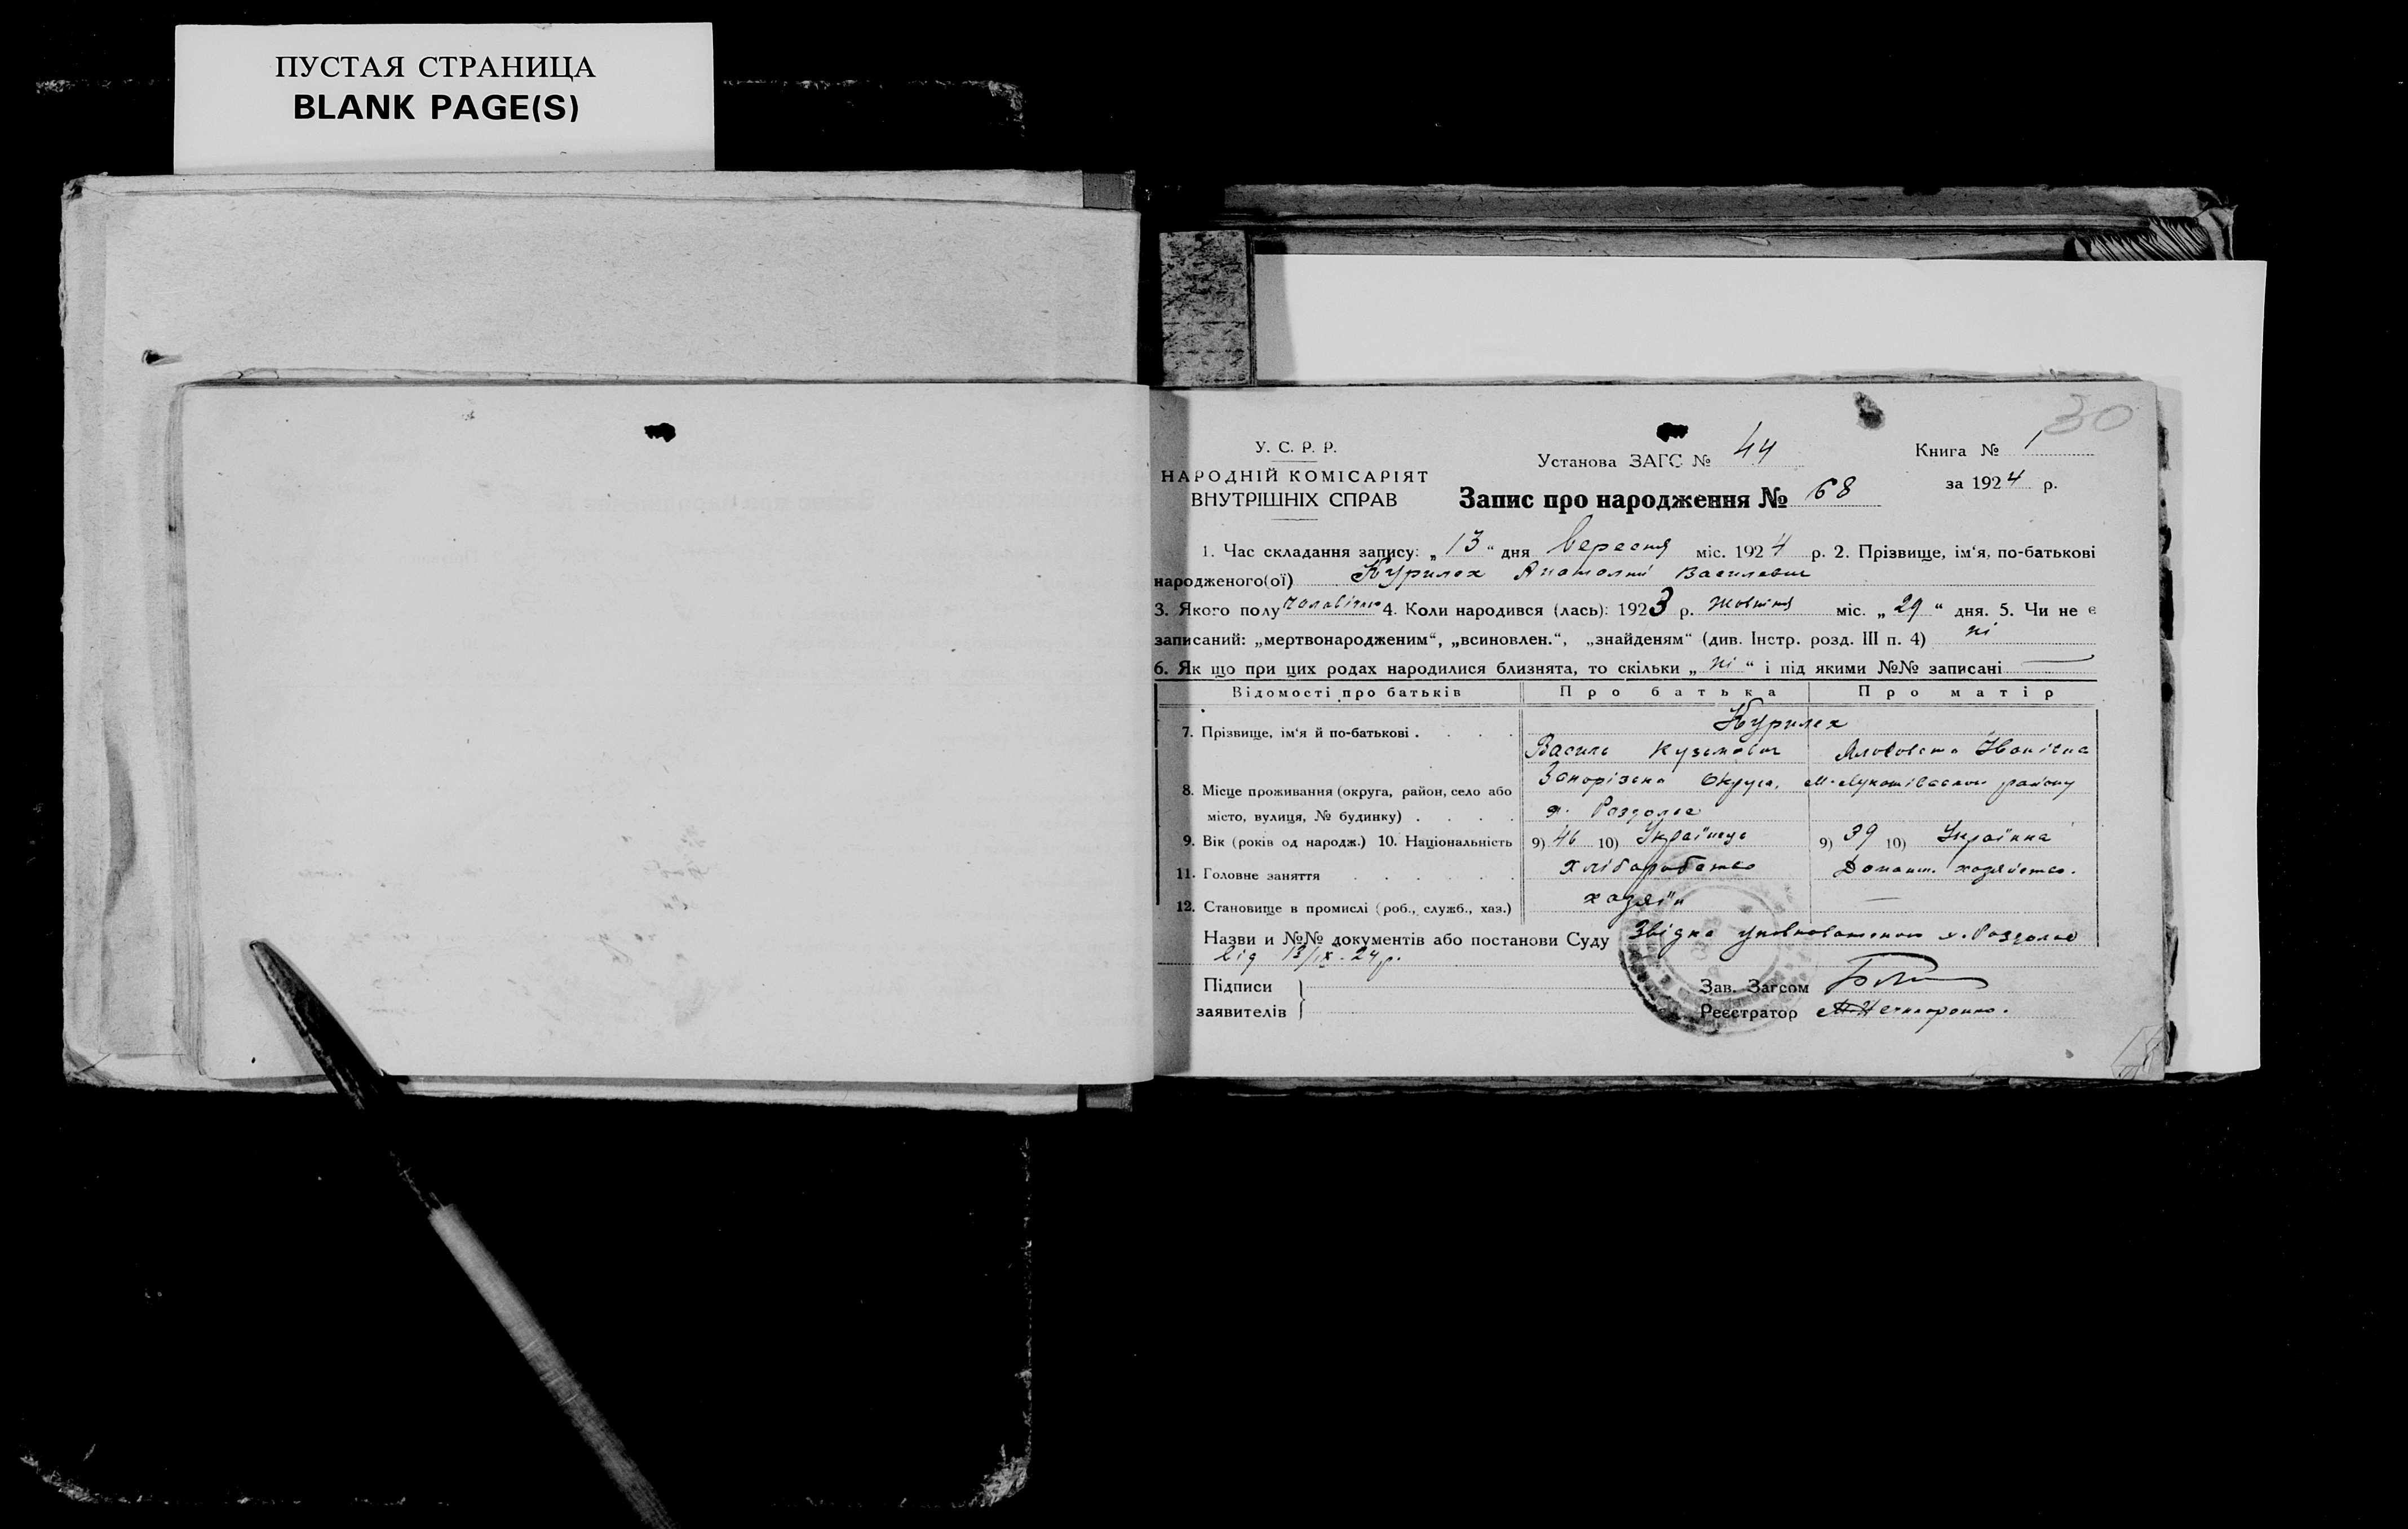 ПУСТАЯ СТРАНИЦА
BLANK PAGE(S)
30
У. С. Р. Р.
НАРОДНІЙ КОМІСАРІЯТ
ВНУТРІШНІХ СПРАВ
Установа ЗАГС № 44
Книга № 1
за 1924 р.
Запис про народження № 68
1. Час складання запису: „13“ дня вересня міс. 1924 р. 2. Прізвище, ім‘я, по-батькові
народженого(ої) Курилех Анатолій Василевич
3. Якого полу чоловічого 4. Коли народився (лась): 1923 р. жовтня міс. „29“ дня. 5. Чи не є
записаний: „мертвонародженим“, „всиновлен.“, „знайденям“ (див. Інстр. розд. III п. 4) ні
6. Як що при цих родах народилися близнята, то скільки „ні“ і під якими №№ записані —
Відомості про батьків Про батька Про матір
Курилех
7. Прізвище, ім‘я й по-батькові . . . .
Василь Кузьмович Іванівна
Запорізска Округа, района
8. Місце проживання (округа, район, село або
місто, вулиця, № будинку) . . . .
х. Роздолье
9. Вік (років од народж.) 10. Національність 9) 46 10) Українець 9) 39 10) Українка
11. Головне заняття . . . . . . Хліборобство Домашн. хозяйство.
12. Становище в промислі (роб., служб., хаз.) хозяїн —
Назви и №№ документів або постанови Суду Звідка уповноваженого х. Роздолье
від 13/IX-24р.
Підписи
заявителів
Зав. Загсом
Реєстратор